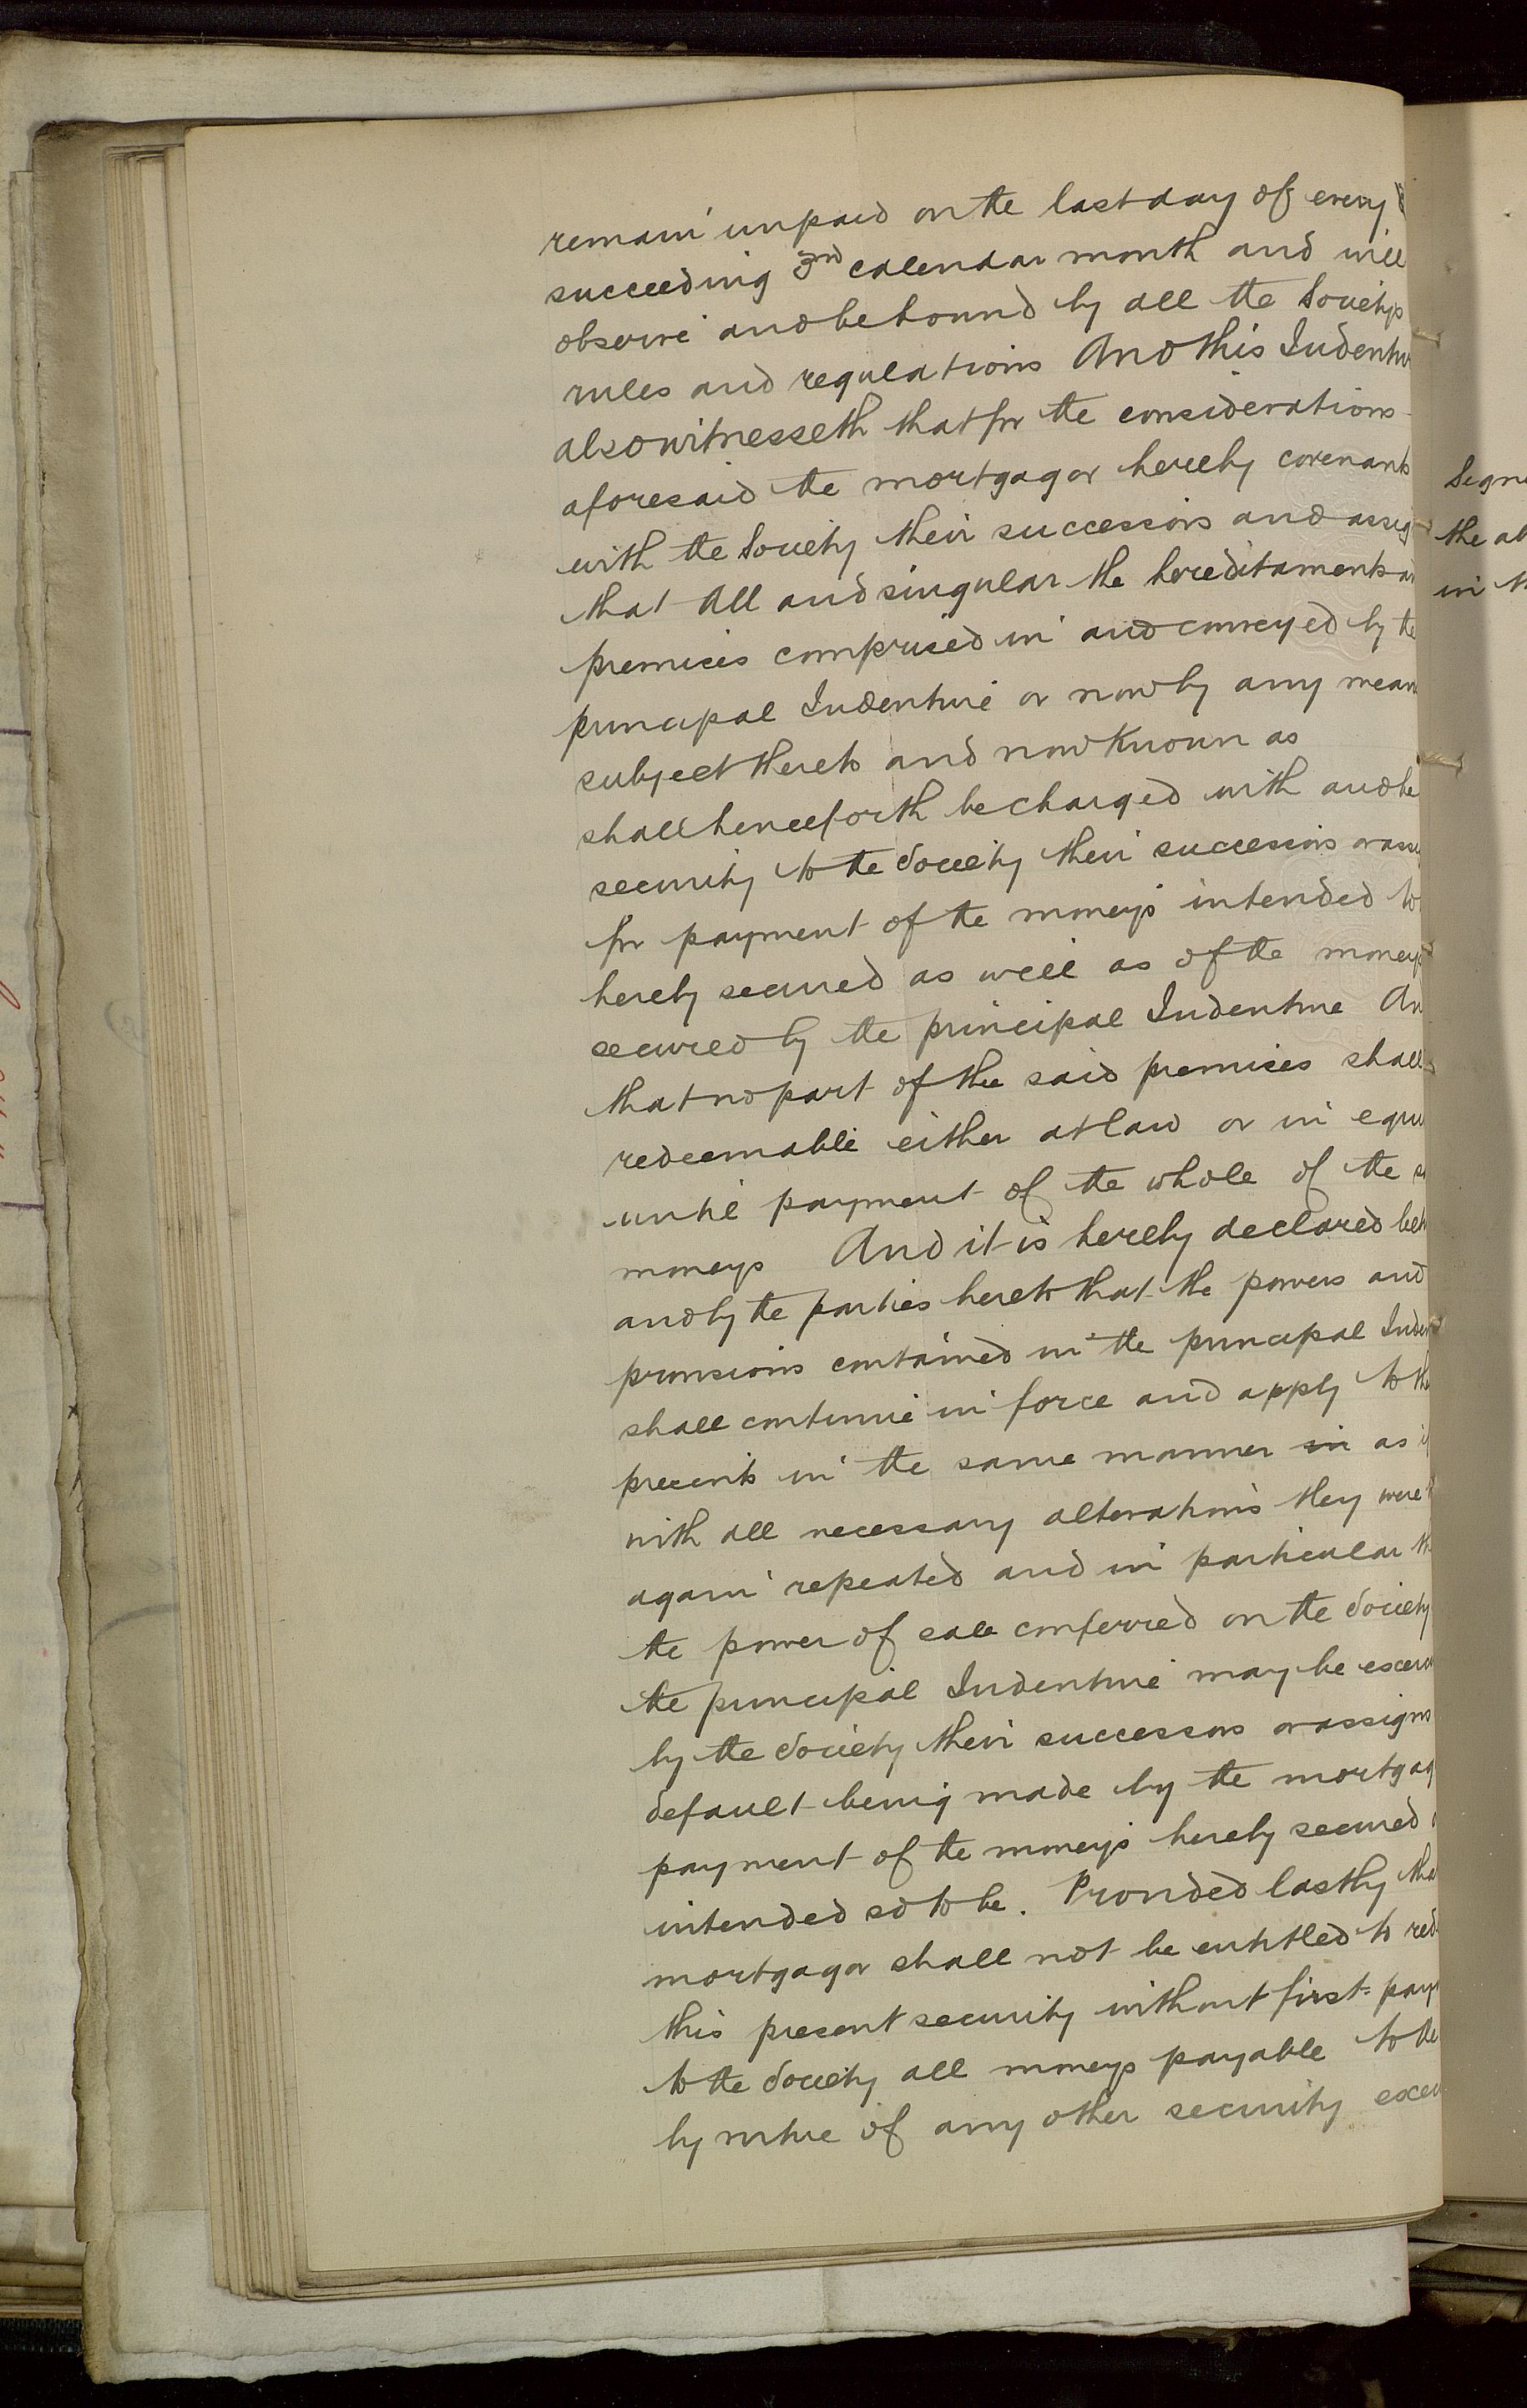 remain unpaid on the last day of every
succeeding 3rd calendar month and will
observe and be bound by all the Societys
rules and regulations And this Indentu
also witnesseth that for the considerations
aforesaid the mortgagor hereby covenants
with the Society their successors and assig
that All and singular the hereditaments a
premises comprised in and conveyed by the
principal Indenture or now by any mean
subject thereto and now known as
shall henceforth be charged with and be
security to the Society their successors or assi
for payment of the moneys intended to
hereby secured as well as of the moneys
secured by the principal Indenture An
that no part of the said premises shall
redeemable either at law or in equi
until payment of the whole of the s
moneys And it is hereby declared bet
and by the parties hereto that the powers and
provisions contained in the principal Inden
shall continue in force and apply to the
presents in the same manner in as if
with all necessary alterations they were
again repeated and in particular th
the power of sale conferred on the Society
the principal Indenture may be exerci
by the Society their successors or assigns
default being made by the mortgag
payment of the moneys hereby secured
intended so to be. Provided lastly tha
mortgagor shall not be entitled to red
this present security without first pay
to the Society all moneys payable to the
by virtue of any other security exec
Signe
the ab
in th